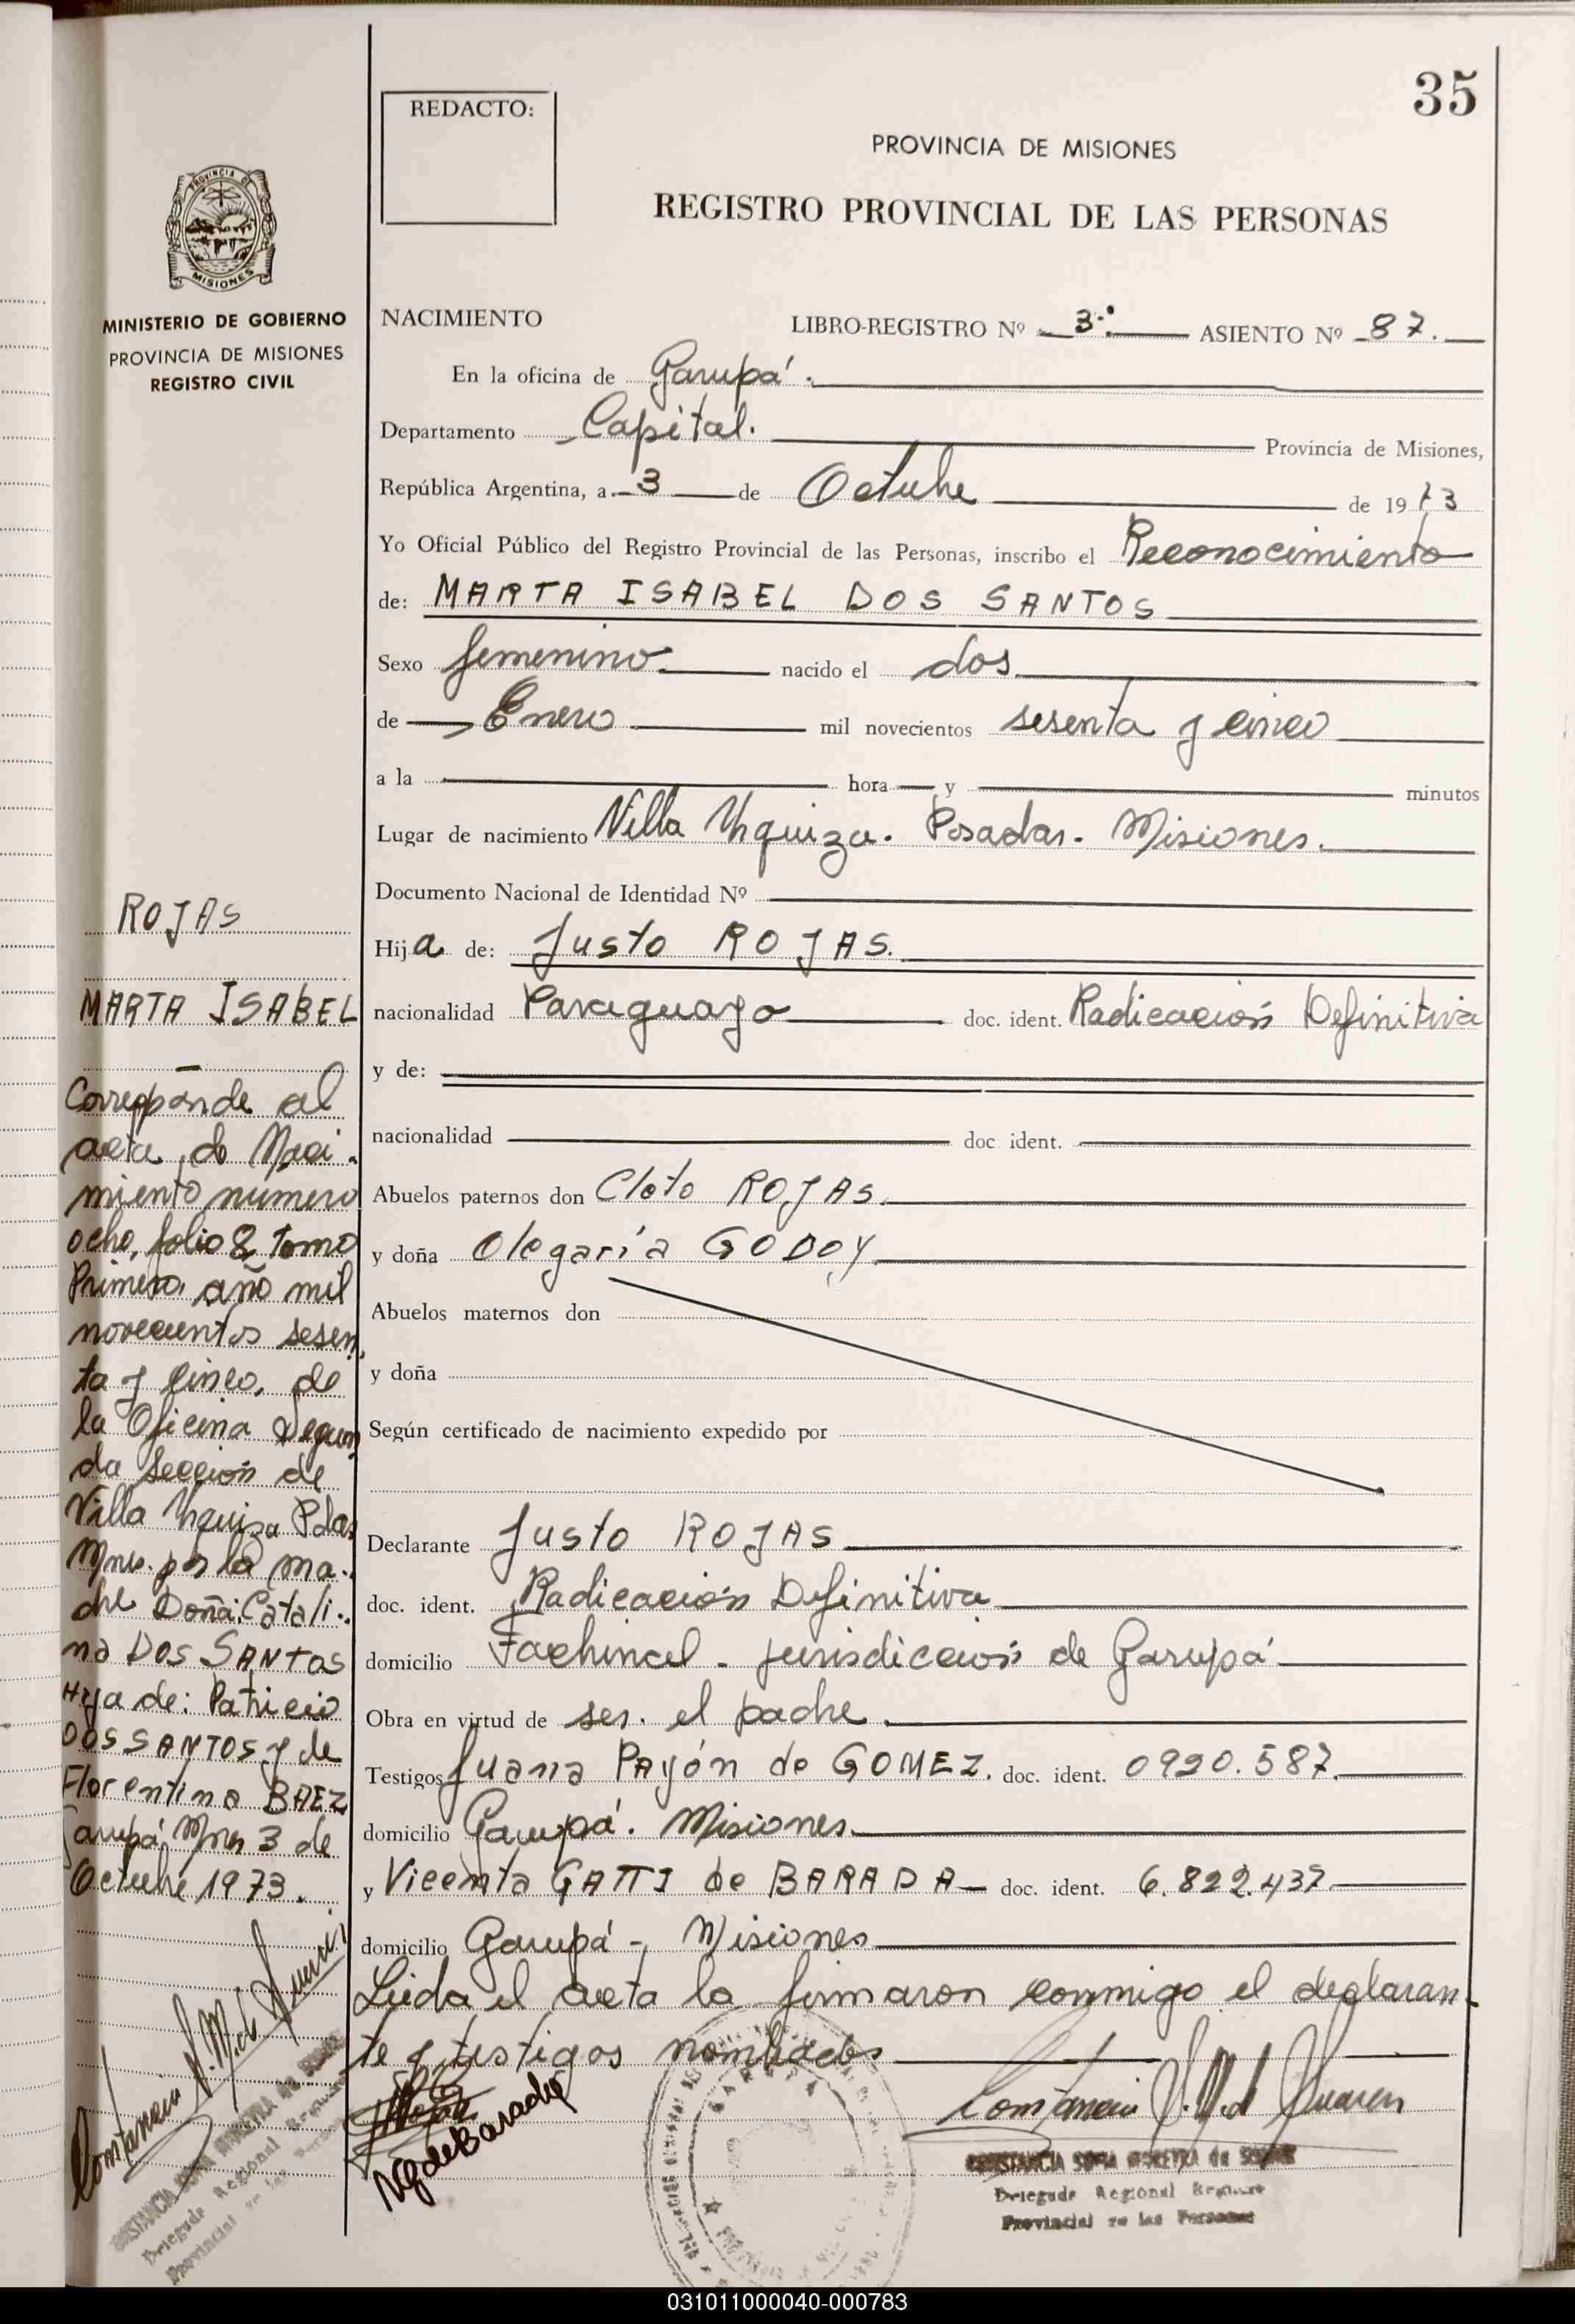 35
REDACTO:
PROVINCIA DE MISIONES
REGISTRO PROVINCIAL DE LAS PERSONAS
PROVINCIA DE
MISIONES
MINISTERIO DE GOBIERNO
PROVINCIA DE MISIONES
REGISTRO CIVIL
NACIMIENTO LIBRO-REGISTRO Nº 3º ASIENTO Nº 87.
En la oficina de Garupá.
Departamento Capital. Provincia de Misiones,
República Argentina, a 3 de Octubre de 1973
Yo Oficial Público del Registro Provincial de las Personas, inscribo el Reconocimiento
de: MARTA ISABEL DOS SANTOS
Sexo femenino nacido el dos
de Enero mil novecientos sesenta y cinco
a la hora y minutos
Lugar de nacimiento Villa Urquiza. Posadas. Misiones.
Documento Nacional de Identidad Nº
Hija de: Justo ROJAS.
nacionalidad Paraguayo doc. ident. Radicación Definitiva
y de:
nacionalidad doc ident.
Abuelos paternos don Cleto ROJAS.
y doña Olegaria GODOY
Abuelos maternos don
y doña
Según certificado de nacimiento expedido por
Declarante Justo ROJAS
doc. ident. Radicación Definitiva
domicilio Fachinal - jurisdicción de Garupá
Obra en virtud de ser. el padre.
Testigos Juana PAYÓN de GOMEZ. doc. ident. 0920.587.
domicilio Garupá. Misiones.
y Vicenta GATTI de BARADA doc. ident. 6.822.437
domicilio Garupá - Misiones
Leida el acta la firmaron conmigo el declaran-
te y testigos nombrados
VG de Barada
Constancia S. M. de
CONSTANCIA SOFIA MOREYRA de
Delegada Regional Registro
Provincial de las Personas
ROJAS
MARTA ISABEL
Corresponde al
acta de Naci-
miento número
ocho, folio 8, Tomo
Primero, año mil
novecientos sesen
ta y cinco, de
la Oficina Segun
da Sección de
Villa Urquiza Pdas
Mnes. por la ma-
dre Doña Catali-
na DOS SANTOS
Hija de: Patricio
DOS SANTOS y de
Florentina BAEZ
Garupá, Mnes 3 de
Octubre 1973.
Constancia S. M. de
CONSTANCIA SOFIA MOREYRA de
Delegada Regional Registro
Provincial de las
GARUPA
031011000040-000783